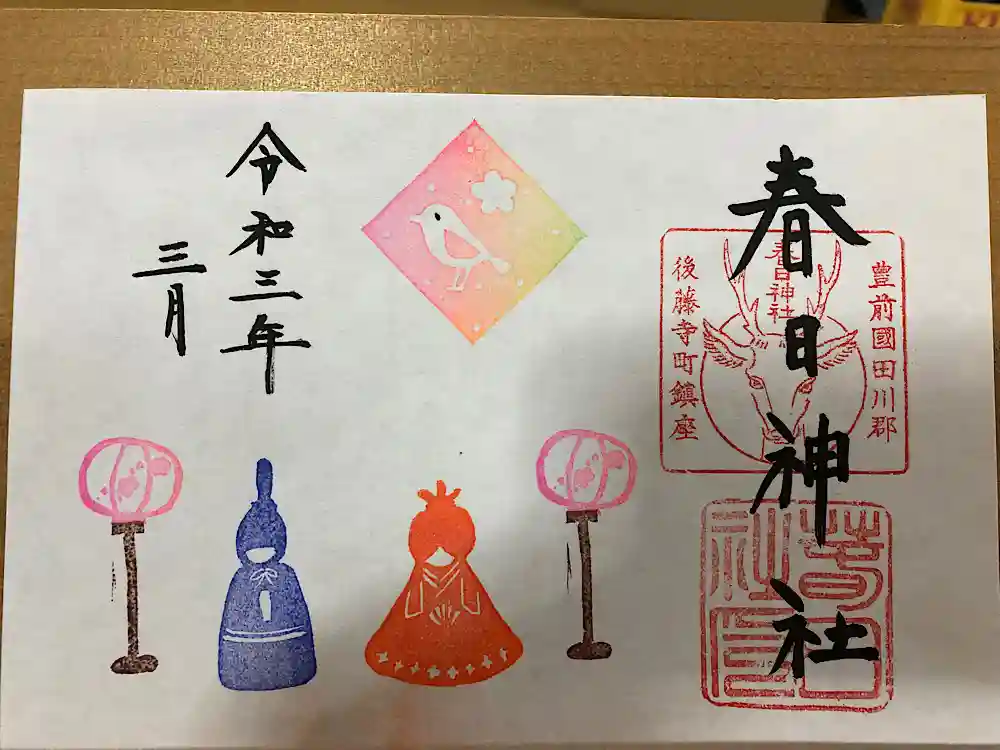 春日神社
豊前國田川郡
春日神社
後藤寺町鎮座
令和三年
三月